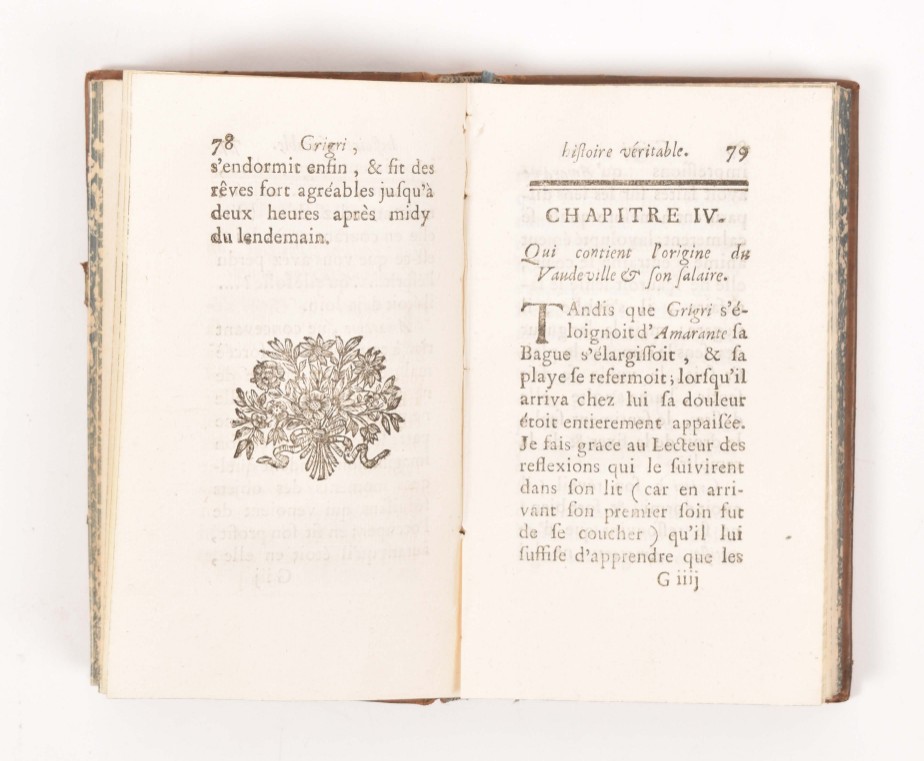 78 Grigri,
s'endormit enfin, & fit des
rêves fort agréables juſqu'à
deux heures après midy
du lendemain.
hiſtoire véritable. 79
CHAPITRE IV.
Qui contient l'origine du
Vaudeville & ſon ſalaire.
TAndis que Grigri s'é-
loignoit d'Amarante ſa
Bague s'élargiſſoit, & ſa
playe ſe refermoit; lorſqu'il
arriva chez lui ſa douleur
étoit entierement appaiſée.
Je fais grace au Lecteur des
reflexions qui le ſuivirent
dans ſon lit (car en arri-
vant ſon premier ſoin fut
de ſe coucher) qu'il lui
ſuffiſe d'apprendre que les
G iiij